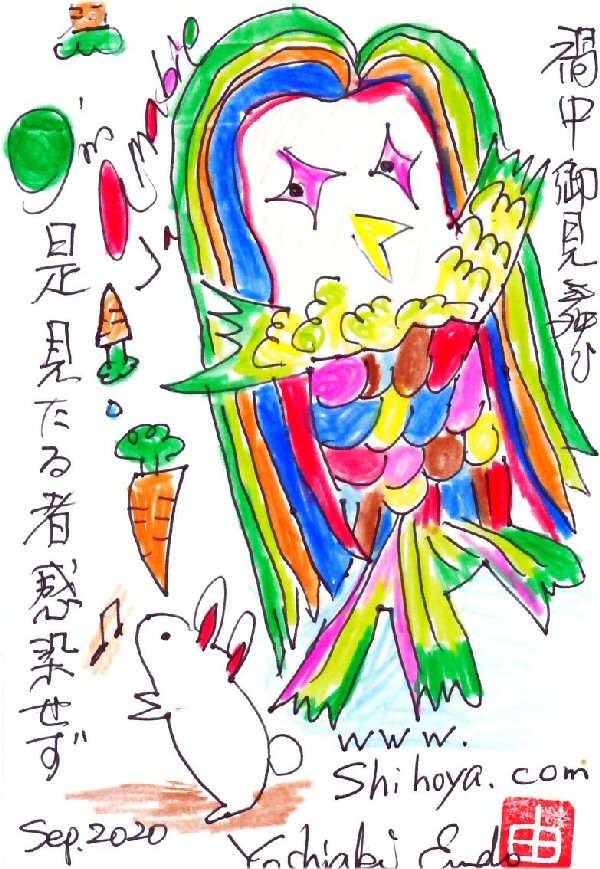 禍中御見
I'm Amabie
是見たる者感染せず
www.
Shihoya.com
Sep.2020
Endo
由